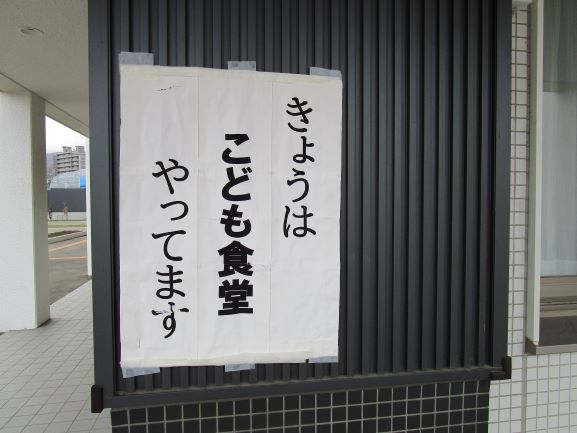 きょうは
こども食堂
やってます